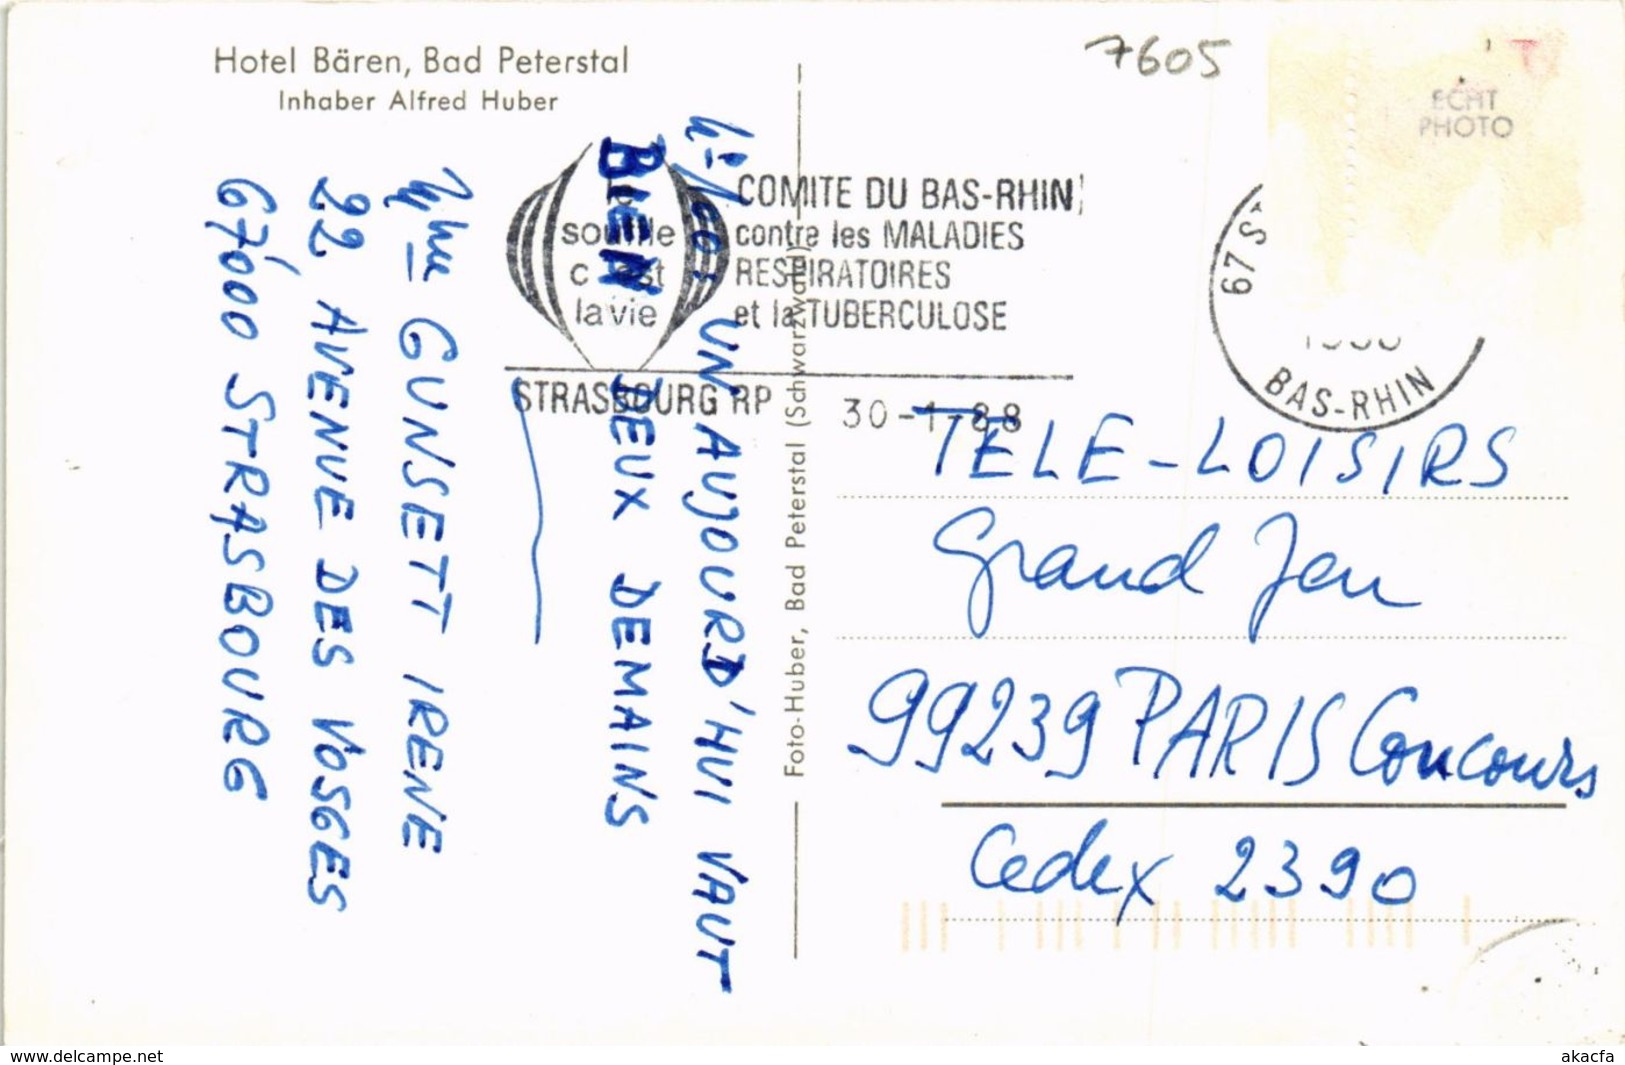 Hotel Bären, Bad Peterstal
Inhaber Alfred Huber
7605
ECHT
PHOTO
souffle
c'est
la vie
COMITE DU BAS-RHIN
contre les MALADIES
RESPIRATOIRES
et la TUBERCULOSE
STRASBOURG RP 30-1-88
67 S
BAS-RHIN
UN AUJOURD'HUI VAUT
BIEN DEUX DEMAINS
GUNSETT IRENE
22, AVENUE DES VOSGES
67000 STRASBOURG
Foto-Huber, Bad Peterstal (Schwarzwald)
TELE-LOISIRS
Grand Jeu
99239 PARIS Concours
Cedex 2390
www.delcampe.net
akacfa